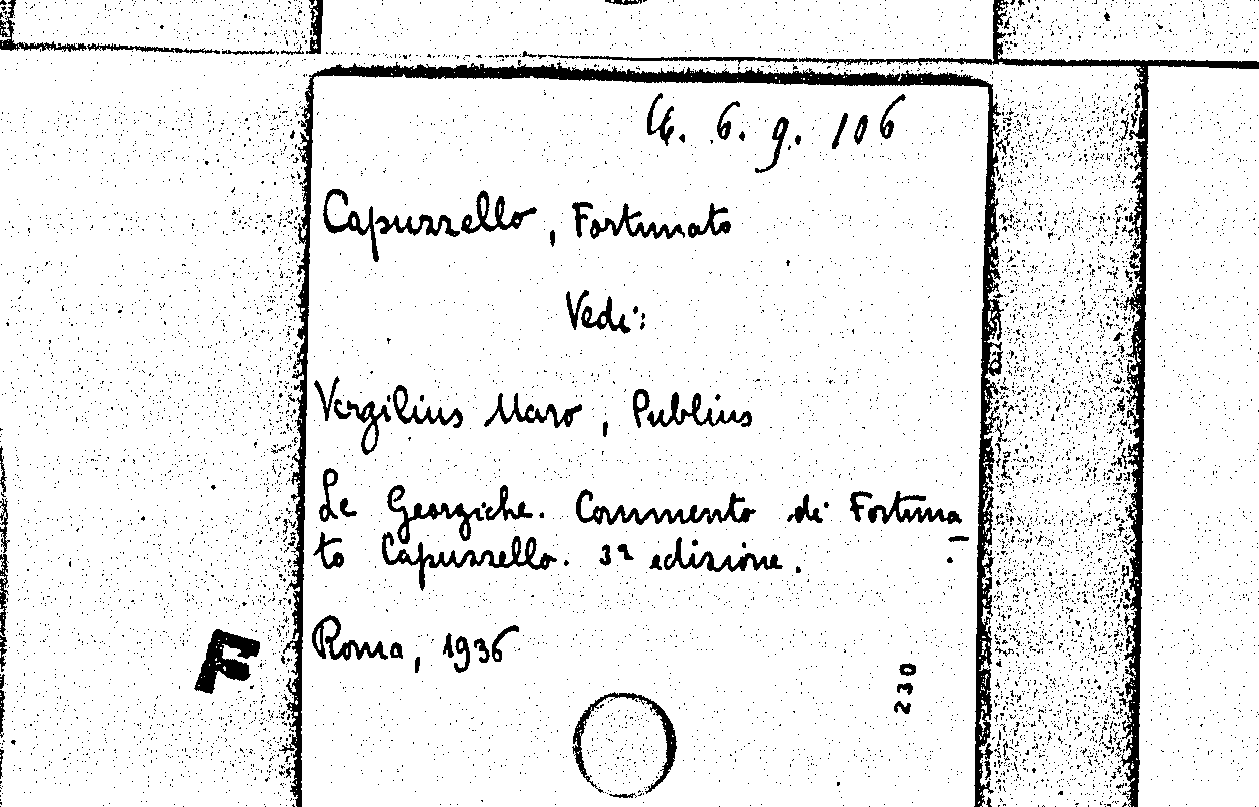 6. 9. 106
Capuzzello, Fortunato
Vedi:
Vergilius Maro, Publius
Le Georgiche. Commento di Fortuna
to Capuzzello. 3ª edizione.
Roma, 1936
F
230